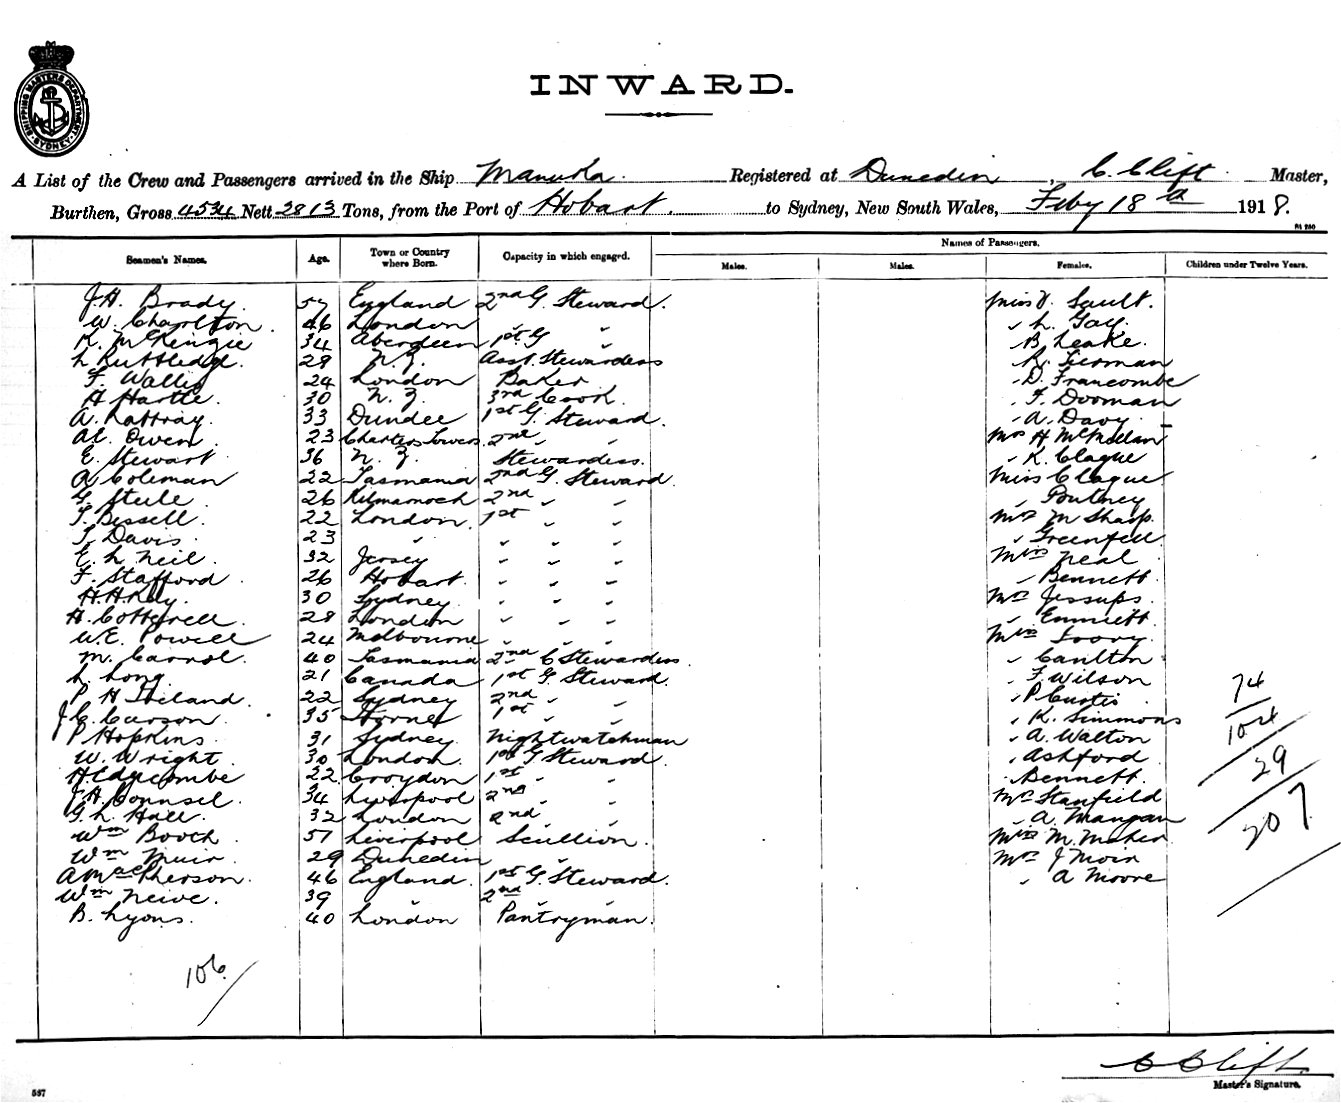 SHIPPING MASTERS DEPARTMENT SYDNEY
INWARD.
A List of the Crew and Passengers arrived in the Ship Manuka. Registered at Dunedin, C. Clift Master,
Burthen, Gross 4534 Nett 2813 Tons, from the Port of Hobart. to Sydney, New South Wales, Feby 18th 1918.
Seamen's Names. Age. Town or Country where Born. Capacity in which engaged. Names of Passengers.
Males. Males. Females. Children under Twelve Years.
J.H. Brady. 57 England 2nd G. Steward. Miss V. Sault.
W. Charlton. 46 London " " " L. Gay.
K. McKenzie 34 Aberdeen 1st G " " B. Leake.
L Ruttledge. 28 N.Z. Asst. Stewardess " R. Tierman
F. Wallis 24 London Baker " D. Francombe
H Hartle. 30 N.Z. 3rd Cook. " F. Dooman
A. Lattray. 33 Dundee 1st G. Steward. " A. Davy
Al. Owen. 23 Charters Towers 2nd " " Mrs H McMillan
E. Stewart. 36 N.Z. Stewardess. " K. Clague
A Coleman 22 Tasmania 2nd G. Steward. Miss Clague
G. Steele. 26 Kilmarnock 2nd " " " Poulney
T. Bissell. 22 London. 1st " " Mrs M Sharp.
T. Davis. 23 " " " " " Greenfell
E. L Neil. 32 Jersey " " " Miss Neal
F. Stafford. 26 Hobart. " " " " Bennett.
H.H. Kay. 30 Sydney. " " " Mrs Jessups.
H. Cotterell. 28 London " " " " Emmett.
W.E. Powell 24 Melbourne " " " Miss Ivory.
M. Carrol. 40 Tasmania 2nd C Stewardess. " Carlton
L. Long. 21 Canada 1st G. Steward. " F. Wilson
P H Ireland. 22 Sydney 2nd " " " P Curtis
J.C. Carson. 35 1st " " " K. Simmons
P Hopkins. 31 Sydney. Nightwatchman " A. Walton
W. Wright. 30 London. 1st G Steward. " Ashford
H. Edgcombe 22 Croydon 1st " " " Bennett.
J.H. Counsel. 34 Liverpool 2nd " " Mrs Stanfield
G. L. Hall. 32 London 2nd " " " A. Mangan
Wm Booth. 57 Liverpool Scullion. Miss M. Maher
Wm Muir. 29 Dunedin " Mrs J Moir
A MacPherson. 46 England. 1st G. Steward. " A Moore
Wm Neive. 39 " 2nd " "
B. Lyons. 40 London Pantryman.
74
104
29
207
106
C Clift.
Master's Signature.
537